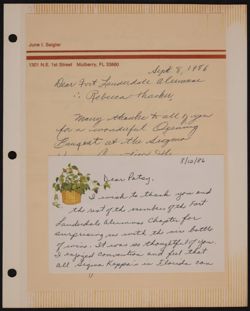 June I. Seigler
1301 N.E. 1st Street Mulberry, FL 33860
Sept 8, 1986
Dear Fort Lauderdale Alumnae
Rebecca
Many thanks to all of you
for a wonderful Opening
Banquet at the Sigma
8/10/86
Dear Patsy,
I wish to thank you and
the rest of the members of the Fort
Lauderdale Alumnae Chapter for
surprising us with the nice bottle
of wine. It was so thoughtful of you.
I enjoyed convention and feel that
all Sigma Kappa's in Florida can